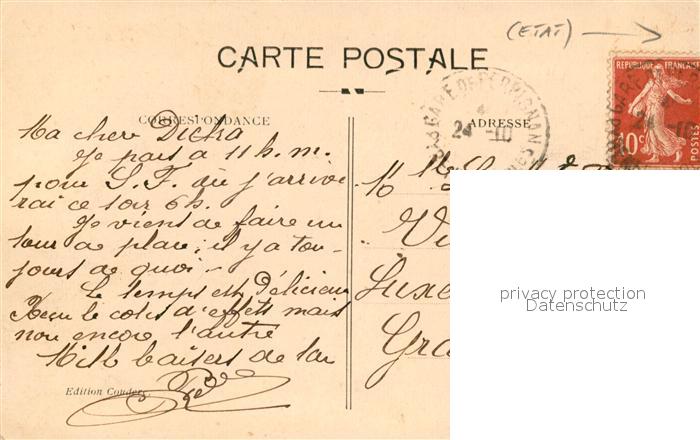 (ETAT)
CARTE POSTALE
REPUBLIQUE FRANÇAISE
10c
POSTES
GARE DE PERPIGNAN
24 -10
CORRESPONDANCE
ADRESSE
Ma chere
Je pars à 11 h. m.
pour S. F. où j'arrive
rai ce soir 6 h.
Je viens de faire un
tour de place; il y a tou-
jours de quoi -
Le temps est délicieux
Reçu le colis d'effets mais
non encore l'autre
Mille baisers de ton
Edition Couderc.
M
Vi
Luxe
Gra
privacy protection
Datenschutz